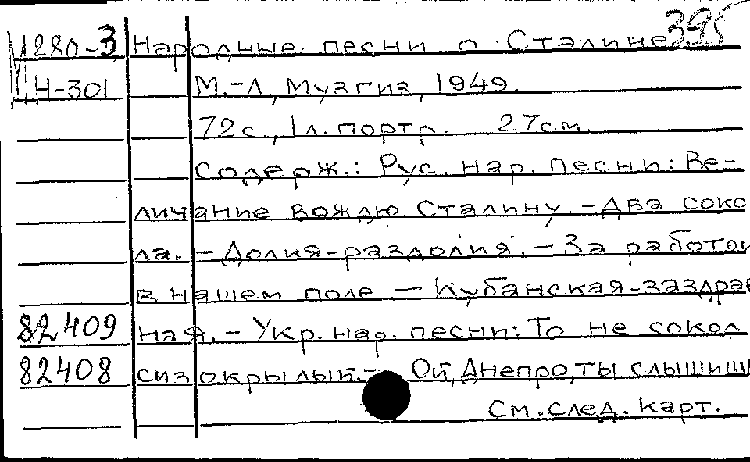 395
1280-3 Народные песни о Сталине
Н-301 М.-Л, Музгиз, 1949.
72с., 1л. портр. 27см.
Содерж.: Рус. нар. песни: Ве-
личание вождю Сталину - Два соко
ла. - Долия-раздолия. - За работой
в нашем поле - Кубанская-заздрав
82409 ная. - Укр. нар. песни: То не сокол
82408 сизокрылый. - Ой, Днепро, ты слышиш
См. след. карт.